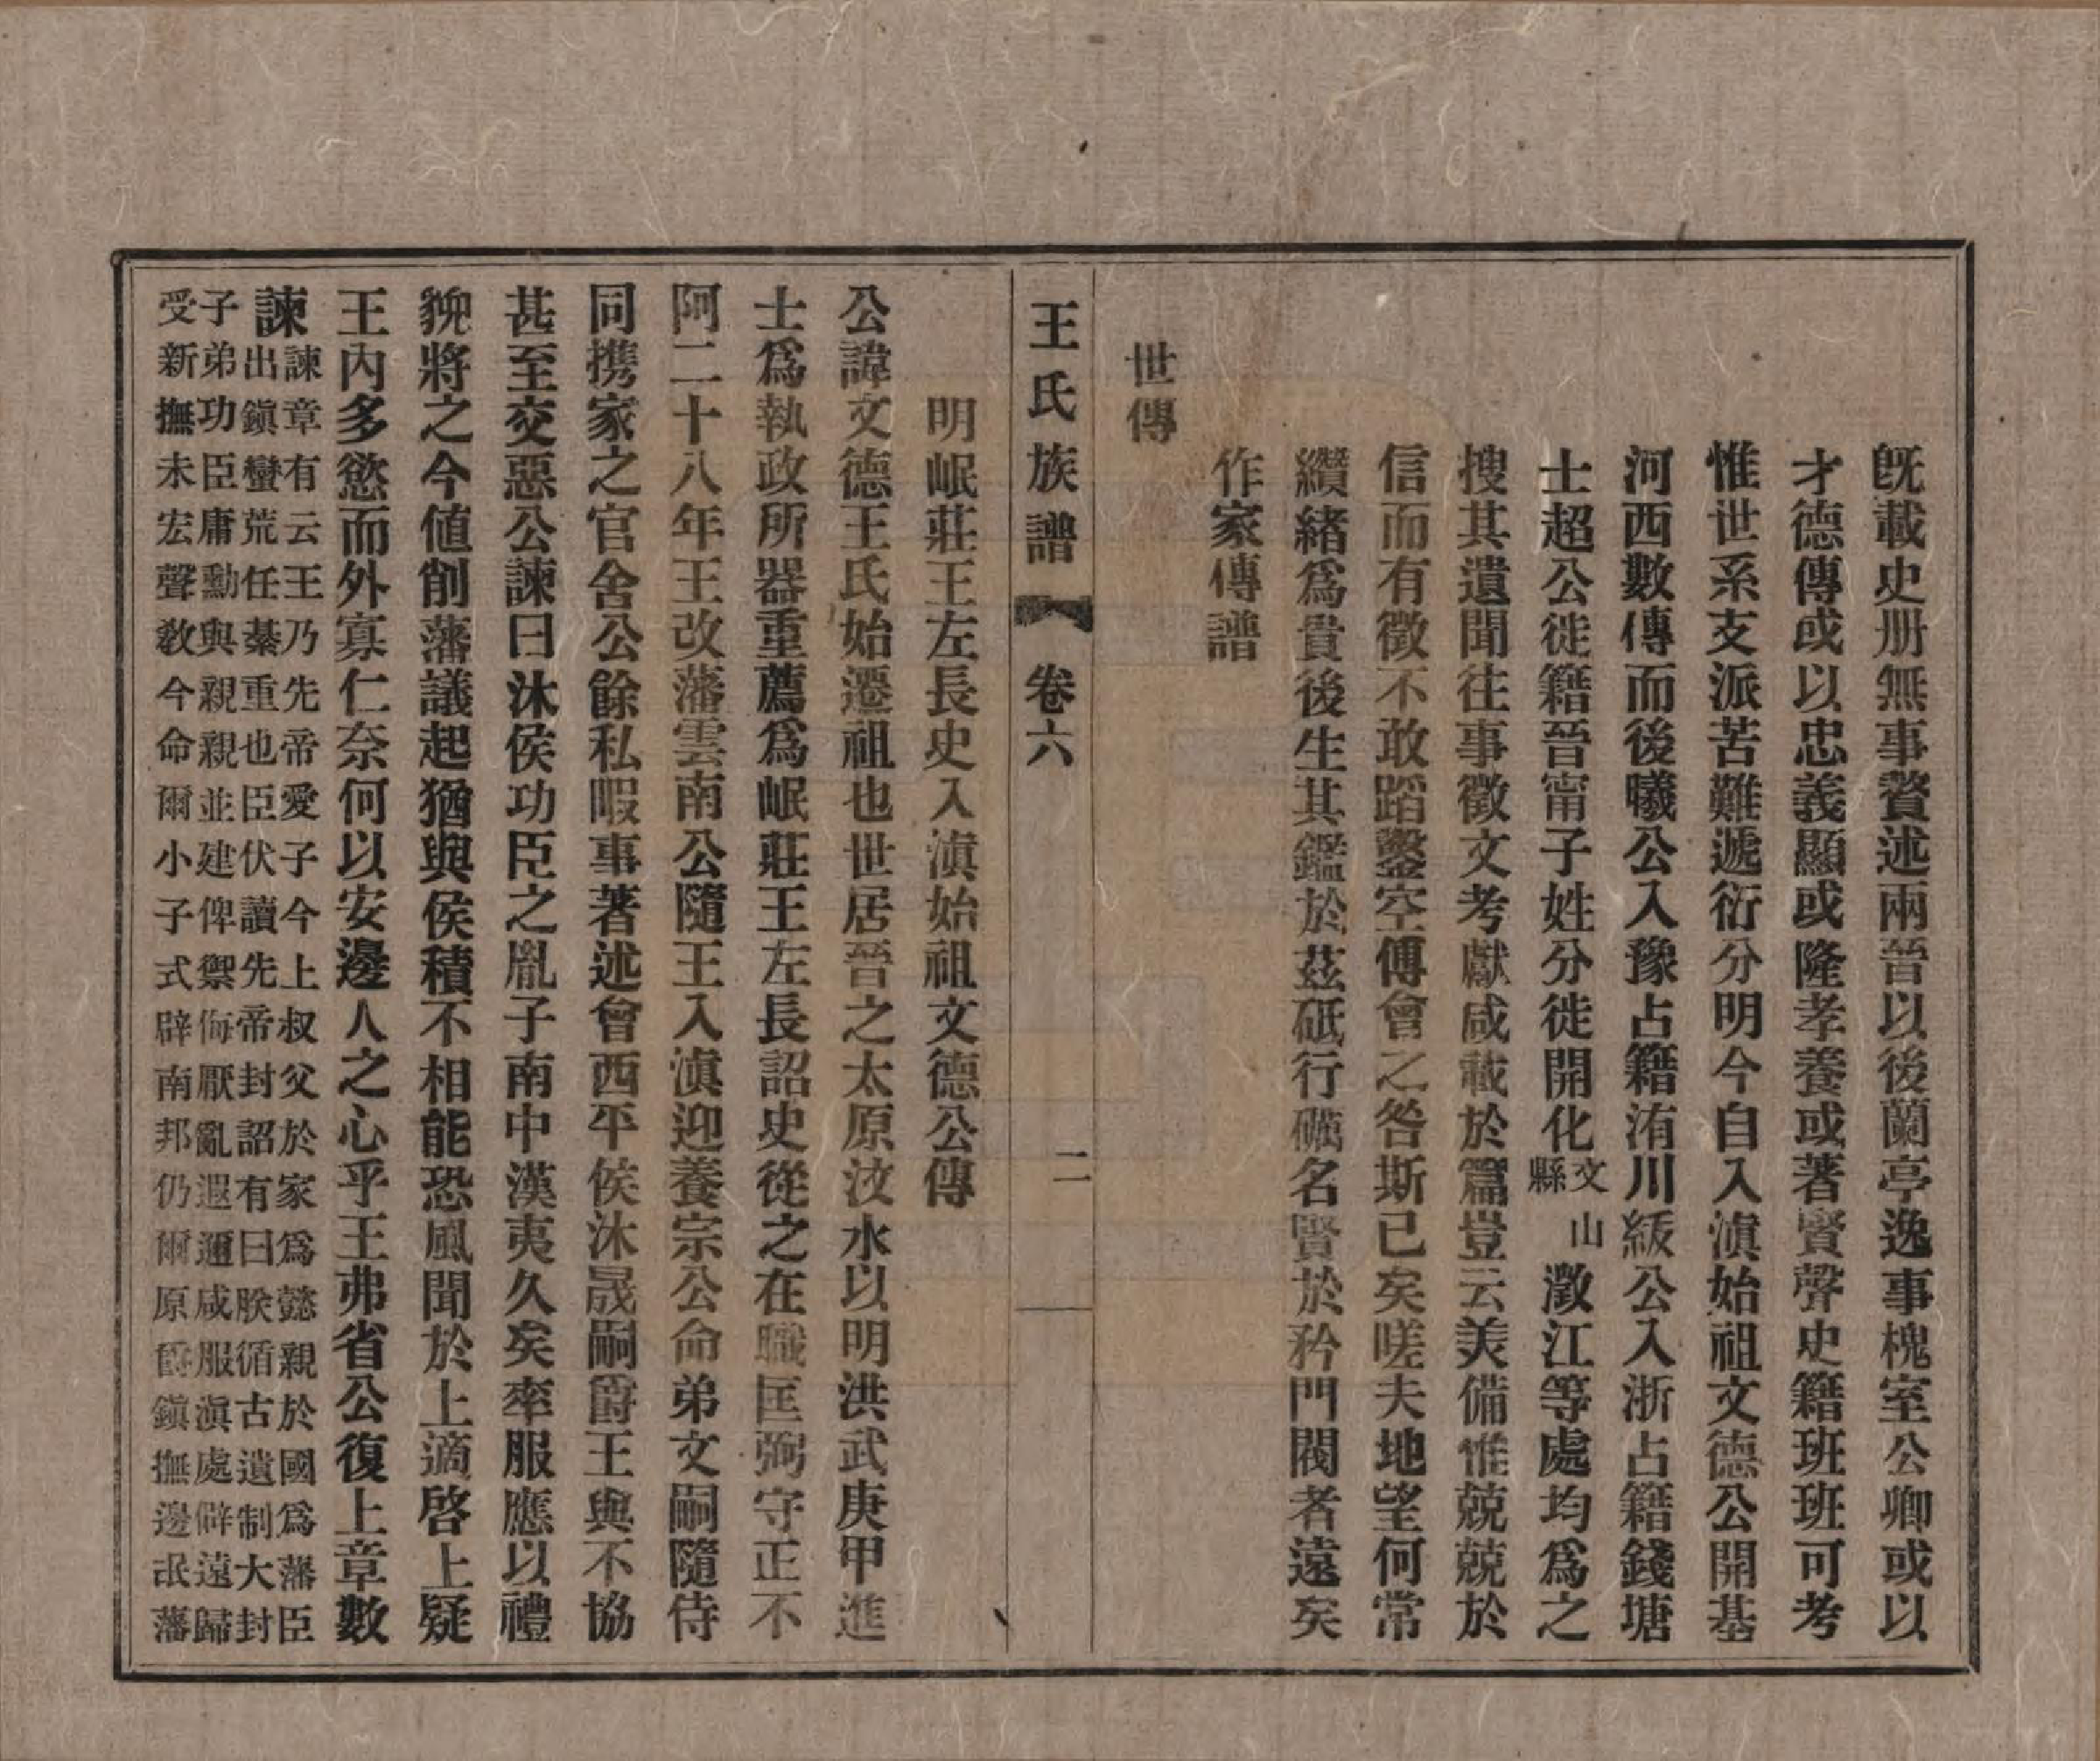 既載史册無事贅述兩晉以後蘭亭逸事槐室公卿或以
才德傳或以忠義顯或隆孝養或著賢聲史籍班班可考
惟世系支派苦難遞衍分明今自入滇始祖文德公開基
河西數傳而後曦公入豫占籍洧川紱公入浙占籍錢塘
士超公徙籍晉甯子姓分徙開化文山縣澂江等處均爲之
搜其遺聞往事徵文考獻咸載於篇豈云美備惟兢兢於
信而有徵不敢蹈鑿空傅會之咎斯已矣嗟夫地望何常
纘緒爲貴後生其鑑於茲砥行礪名賢於矜門閥者遠矣
作家傳譜
世傳
王氏族譜 卷六 二
明岷莊王左長史入滇始祖文德公傳
公諱文德王氏始遷祖也世居晉之太原汶水以明洪武庚甲進
士爲執政所器重薦爲岷莊王左長詔史從之在職匡弼守正不
阿二十八年王改藩雲南公隨王入滇迎養宗公命弟文嗣隨侍
同携家之官舍公餘私暇事著述會西平侯沐晟嗣爵王與不協
甚至交惡公諫曰沐侯功臣之胤子南中漢夷久矣率服應以禮
貌將之今値削藩議起猶與侯積不相能恐風聞於上適啓上疑
王內多慾而外寡仁奈何以安邊人之心乎王弗省公復上章數
諫諫章有云王乃先帝愛子今上叔父於家爲懿親於國爲藩臣
出鎭蠻荒任綦重也臣伏讀先帝封詔有曰朕循古遺制大封
子弟功臣庸勳與親親並建俾禦侮厭亂遐邇咸服滇處僻遠歸
受新撫未宏聲敎今命爾小子式辟南邦仍爾原爵鎭撫邊氓藩